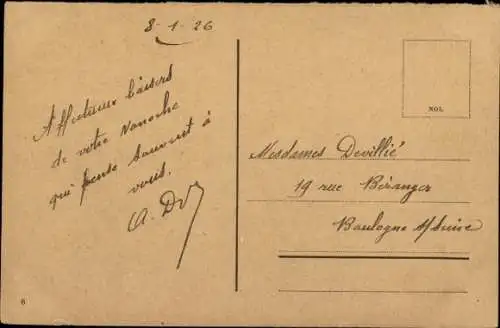 8-1-26
Affectueux baisers
de votre
qui pense souvent à
vous.
NOL
Mesdames Devillié
19 rue Béranger
Boulogne s/Seine
6